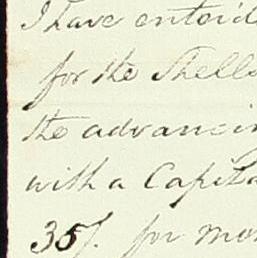 I have enter'd
for the Shells
the advancin
with a Capita
35/. for mo